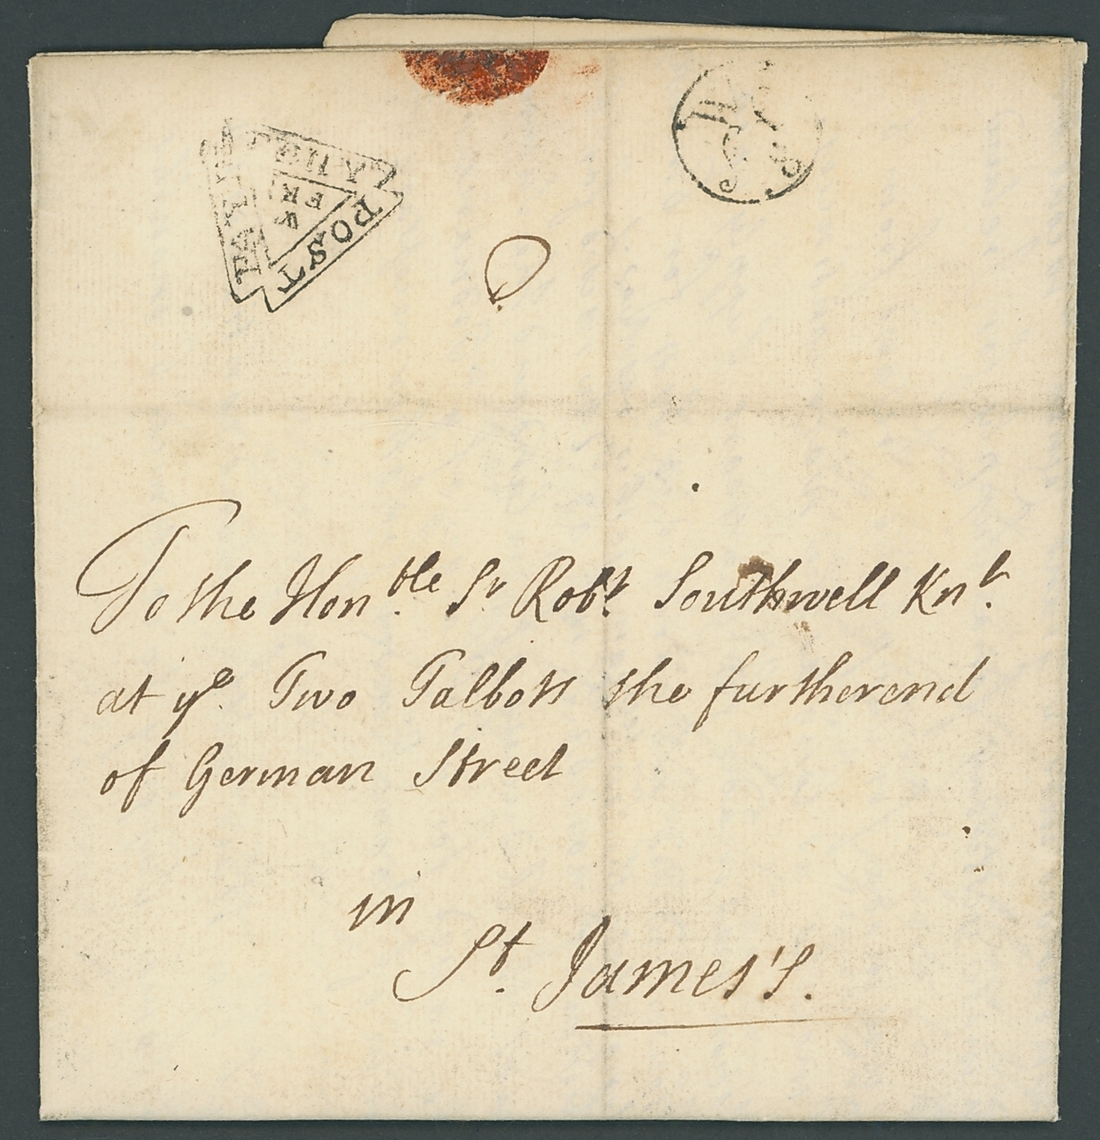 PENY POST PAYD
W
FR
To the Hon.ble Sr Robt. Southwell Knt.
at ye. Two Talbotts the furtherend
of German Street
in
St. James's.